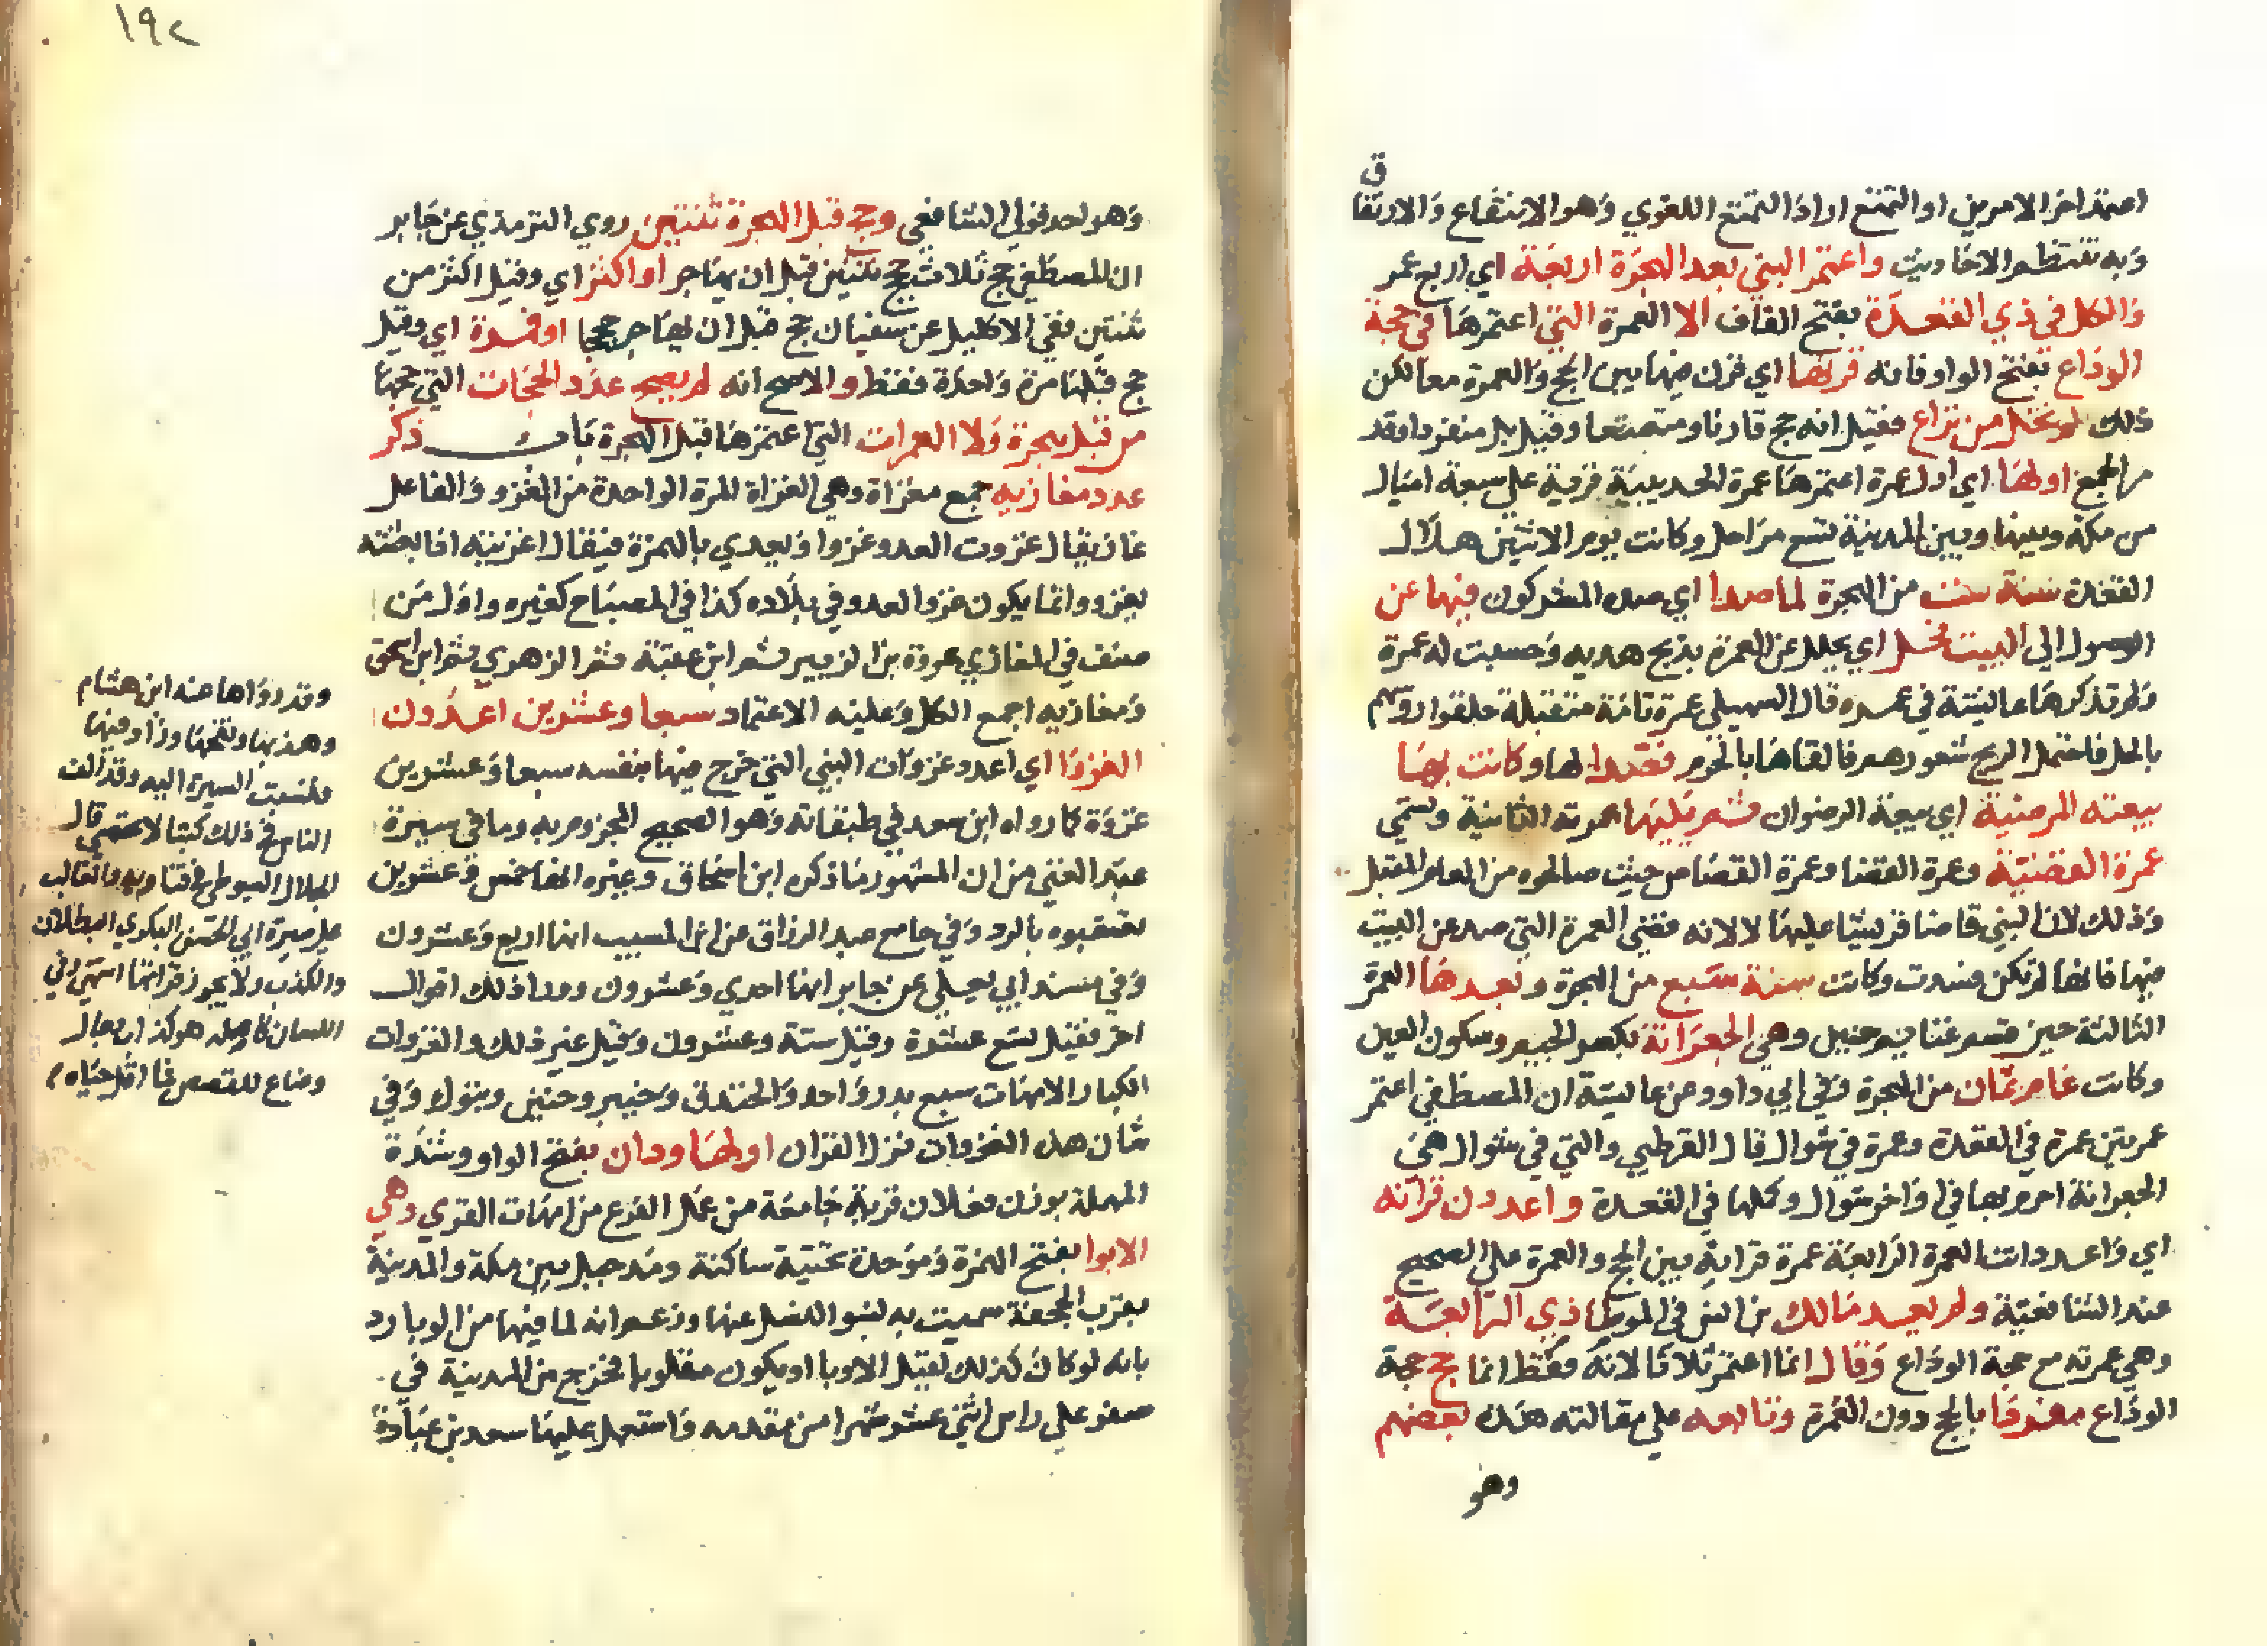 اعتمد اخر الامرين او التمتع اراد التمتع اللغوي وهو الانتفاع والارتفاق
وبه تنتظم الاحاديث واعتمر النبي بعد الهجرة اربعة اي اربع عمر
والكل في ذي القعدة بفتح القاف الا العمرة التي اعتمرها في حجة
الوداع بفتح الواو فانه قرنها اي قرن فيها بين الحج والعمرة معا لكن
ذلك لم يخل من نزاع فقيل انه حج قارنا ومتمتعا وقيل بل منفردا وقد
مر الجمع اولها اي اول عمرة اعتمرها عمرة الحديبية قرية على سبعة اميال
من مكة وبينها وبين المدينة تسع مراحل وكانت يوم الاثنين هلال
القعدة سنة ست من الهجرة لما صدا اي صده المشركون فيها عن
الوصول الى البيت فحل اي تحلل عن العمرة بذبح هديه وحسبت له عمرة
ولم تذكرها عايشة في عده قال السهيلي عمرة تامة متقبلة حلقوا روسهم
بالحل فاحتمل الريح شعورهم فالقاها بالحرم فعدوا لها وكانت بها
بيعته المرضية اي بيعة الرضوان ثم يليها عمرته الثانية وتسمى
عمرة القضية وعمرة القضا وعمرة القصاص حيث صالحوه من العام المقبل
وذلك لان النبي قاضا قريشا عليها لا لانه قضى العمرة التي صد عن البيت
فيها فانها لم تكن فسدت وكانت سنة سبع من الهجرة وبعدها العمرة
الثالثة حين قسم غنايم حنين وهي الجعرانة بكسر الجيم وسكون العين
وكانت عام ثمان من الهجرة وفي ابي داوود عن عايشة ان المصطفى اعتمر
عمرتين عمرة في القعدة وعمرة في شوال قال القرطبي والتي في شوال هي
الجعرانة احرم بها في اواخر شوال وكملها في القعدة واعددن قرانه
اي واعددن انت العمرة الرابعة عمرة قرانه بين الحج والعمرة على الصحيح
عند الشافعية ولم يعد مالك بن انس في الموطا ذي الرابعة
وهي عمرته مع حجة الوداع وقال انما اعتمر ثلاثا لانه فقط انما حج حجة
الوداع مفردا بالحج دون العمرة وتابعه على مقالته هذه بعضهم
وهو
١٩٢
وهو احد قولي الشافعي وحج قبل الهجرة ثنتين روي الترمذي عن جابر
ان المصطفى حج ثلاث حجج ثنتين قبل ان يهاجر او اكثر اي وقيل اكثر من
ثنتين ففي الاكليل عن سفيان حج قبل ان يهاجر حججا او فردة اي وقيل
حج قبلها مرة واحدة فقط والاصح انه لم يصح عدد الحجات التي حجها
من قبل هجرة ولا العمرات التي اعتمرها قبل الهجرة باب ذكر
عدد مغازيه جمع مغزاة وهي الغزاة للمرة الواحدة من الغزو والفاعل
غاز يقال غزوت العدو غزوا ويعدي بالهمزة فيقال اغزيته اذا بعثته
يغزو وانما يكون غزو العدو في بلاده كذا في المصباح كغيره واول من
صنف في المغازي عروة بن الزبير ثم ابن عقبة ثم الزهري ثم ابن اسحق
ومغازيه اجمع الكل وعليه الاعتماد سبعا وعشرين اعددن
الغزوا اي اعدد غزوات النبي التي خرج فيها بنفسه سبعا وعشرين
غزوة كما رواه ابن سعد في طبقاته وهو الصحيح المجزوم به وما في سيرة
عبد الغني من ان المشهور ما ذكره ابن اسحاق وغيره انها خمس وعشرين
تعقبوه بالرد وفي جامع عبد الرزاق عن ابن المسيب انها اربع وعشرون
وفي مسند ابي يعلي عن جابر انها احدي وعشرون وورا ذلك اقوال
اخر فقيل تسع عشرة وقيل ستة وعشرون وقيل غير ذلك والغزوات
الكبار الامهات سبع بدر واحد والخندق وخيبر وحنين وتبوك وفي
شان هذه الغزوات نزل القران اولها ودان بفتح الواو وشدة
المهملة بوزن فعلان قرية جامعة من عمل الفرع من امهات القري وهي
الابوا بفتح الهمزة وموحدة تحتية ساكنة ومد جبل بين مكة والمدينة
بقرب الجحفة سميت به لتبوا السيل عنها وزعم انه لما فيها من الوبا رد
بانه لو كان كذلك لقيل الاوبا او يكون مقلوبا فخرج من المدينة في
صفر على راس اثني عشر شهرا من مقدمه واستعمل عليها سعد بن عبادة
وقد رواها عنه ابن هشام
وهذبها ونقحها وزاد فيها
فنسبت السيرة اليه وقد الف
الناس في ذلك كتبا لا تحصى قال
الجلال السيوطي في فتاويه والغالب
على سيرة ابي الحسن البكري البطلان
والكذب ولا يجوز قراتها